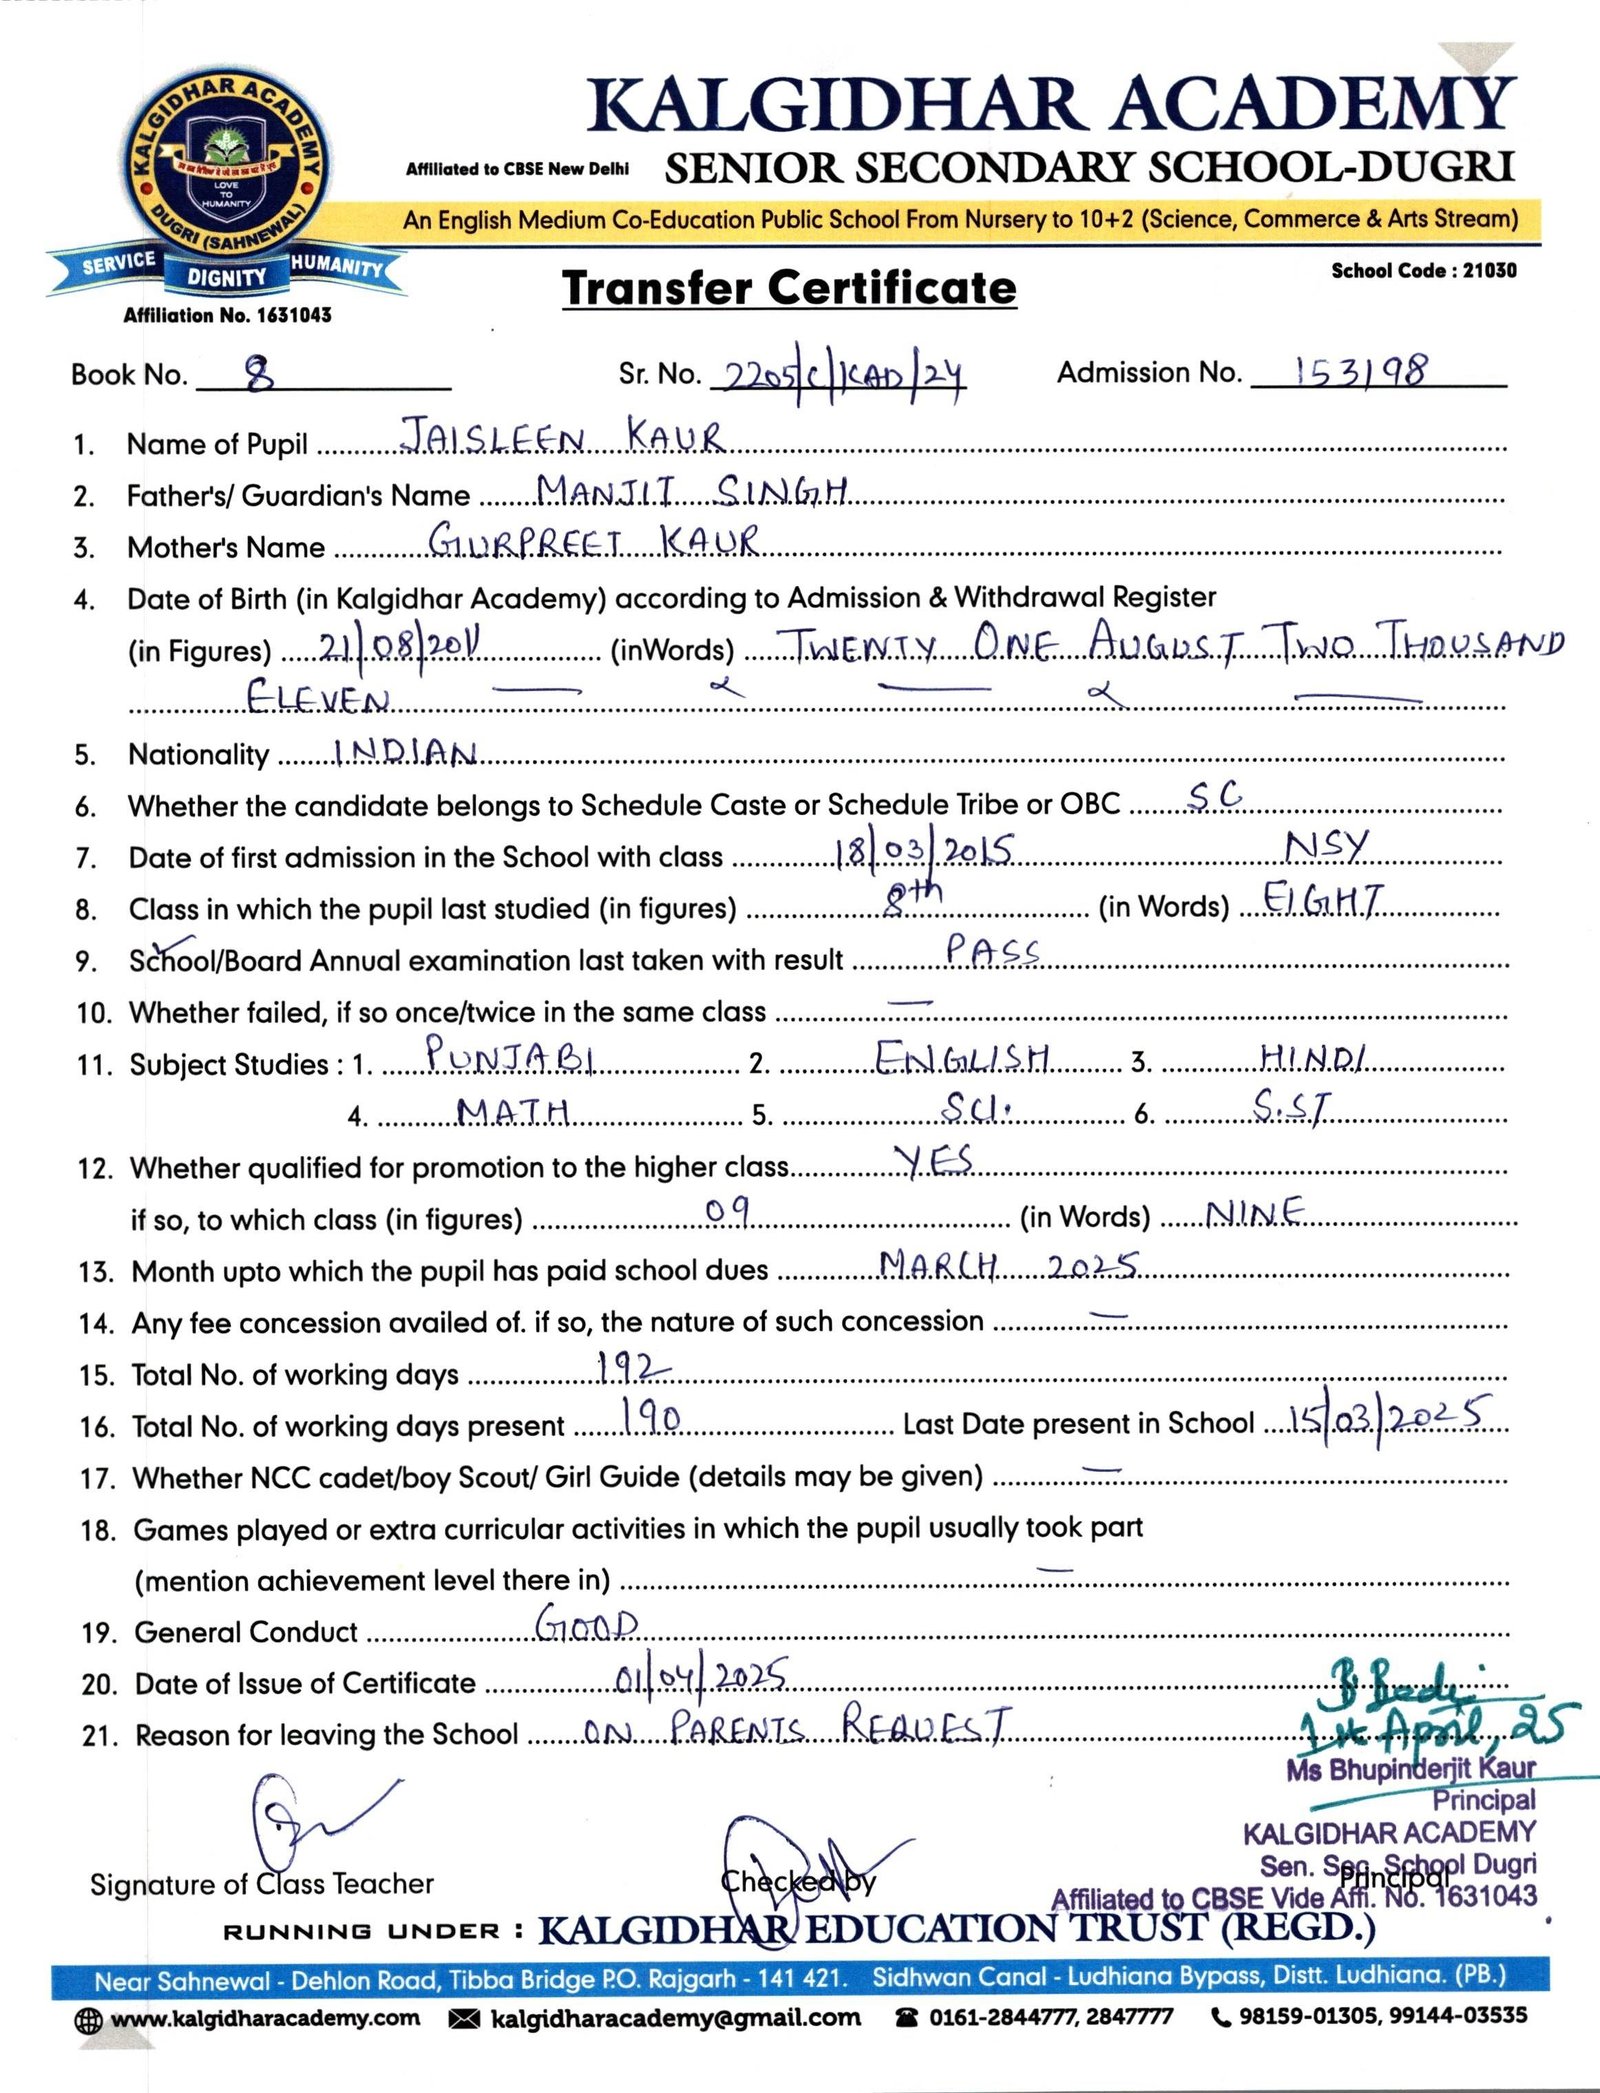 KALGIDHAR ACADEMY
DUGRI (SAHNEWAL)
LOVE
TO
HUMANITY
SERVICE
DIGNITY
HUMANITY
Affiliation No. 1631043
KALGIDHAR ACADEMY
Affiliated to CBSE New Delhi SENIOR SECONDARY SCHOOL-DUGRI
An English Medium Co-Education Public School From Nursery to 10+2 (Science, Commerce & Arts Stream)
School Code : 21030
Transfer Certificate
Book No. 8 Sr. No. 2205/C/KAD/24 Admission No. 153198
1. Name of Pupil JAISLEEN KAUR
2. Father's/ Guardian's Name MANJIT SINGH
3. Mother's Name GURPREET KAUR
4. Date of Birth (in Kalgidhar Academy) according to Admission & Withdrawal Register
(in Figures) 21/08/2011 (inWords) TWENTY ONE AUGUST TWO THOUSAND
ELEVEN
5. Nationality INDIAN
6. Whether the candidate belongs to Schedule Caste or Schedule Tribe or OBC SC
7. Date of first admission in the School with class 18/03/2015 NSY
8. Class in which the pupil last studied (in figures) 8th (in Words) EIGHT
9. School/Board Annual examination last taken with result PASS
10. Whether failed, if so once/twice in the same class —
11. Subject Studies : 1. PUNJABI 2. ENGLISH 3. HINDI
4. MATH 5. SCI. 6. S.ST
12. Whether qualified for promotion to the higher class YES
if so, to which class (in figures) 09 (in Words) NINE
13. Month upto which the pupil has paid school dues MARCH 2025
14. Any fee concession availed of. if so, the nature of such concession —
15. Total No. of working days 192
16. Total No. of working days present 190 Last Date present in School 15/03/2025
17. Whether NCC cadet/boy Scout/ Girl Guide (details may be given) —
18. Games played or extra curricular activities in which the pupil usually took part
(mention achievement level there in) —
19. General Conduct GOOD
20. Date of Issue of Certificate 01/04/2025
21. Reason for leaving the School ON PARENTS REQUEST
B Bedi
1st April, 25
Ms Bhupinderjit Kaur
Principal
KALGIDHAR ACADEMY
Sen. Sec. School Dugri
Affiliated to CBSE Vide Affi. No. 1631043
Signature of Class Teacher Checked by Principal
RUNNING UNDER : KALGIDHAR EDUCATION TRUST (REGD.)
Near Sahnewal - Dehlon Road, Tibba Bridge P.O. Rajgarh - 141 421. Sidhwan Canal - Ludhiana Bypass, Distt. Ludhiana. (PB.)
www.kalgidharacademy.com kalgidharacademy@gmail.com 0161-2844777, 2847777 98159-01305, 99144-03535